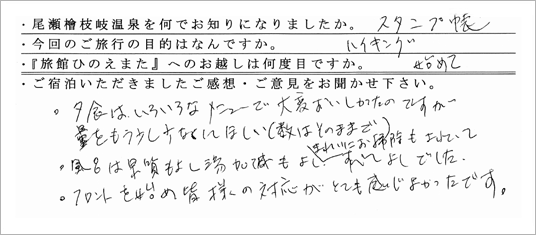 ・尾瀬檜枝岐温泉を何でお知りになりましたか。 スタンプ帳
・今回のご旅行の目的はなんですか。 ハイキング
・『旅館ひのえまた』へのお越しは何度目ですか。 始めて
・ご宿泊いただきましたご感想・ご意見をお聞かせ下さい。
。夕食はいろいろなメニューで大変おいしかたのですが
量をもう少し少なくにほしい(数はそのままで)
きれいにお掃除もされていて
。風呂は泉質もよし湯加減もよし すべてよしでした。
。フロントを始め皆様の対応がとても感じよかったです。